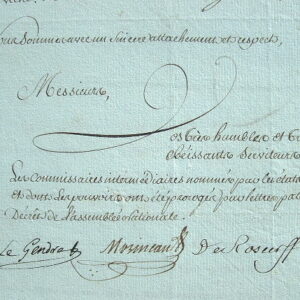 nous sommes avec un sincere attachement et respect,
Messieurs,
os tres humbles et
obéissants Serviteurs
Les commissaires intermédiaires nommés par les états
et dont les pouvoirs ont été prorogés par lettres pat
Décret de l'assemblée nationale.
Le Gendre Morineau De Roscoff